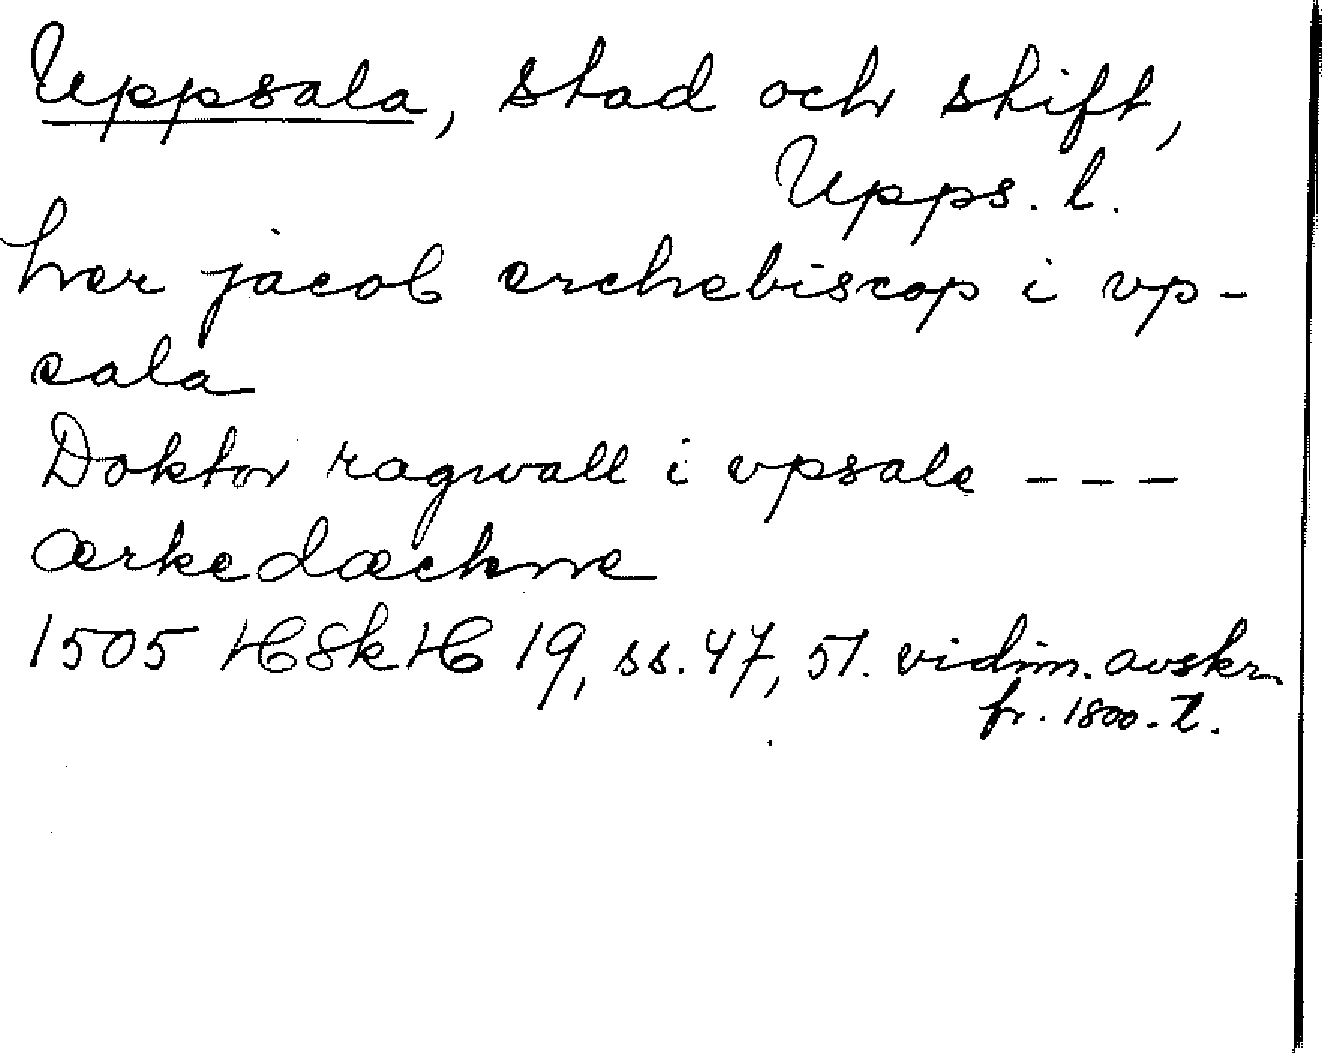 Uppsala, stad och skift,
Upps. l.
her jacob erchebiscop i vp-
sala
Doktor ragwall i vpsale ---
ærkedæckne
1505 HSkH 19, ss. 47, 51. vidim. avskr.
fr. 1800-t.